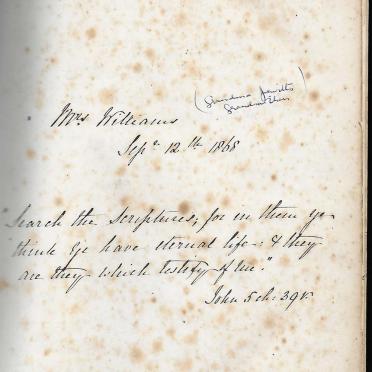 (Grandma
Grandma
Mrs Williams
Sepr 12th 1868
"Search the Scriptures; for in them ye
think ye have eternal life: & they
are they which testify of me."
John 5 ch. 39 v.